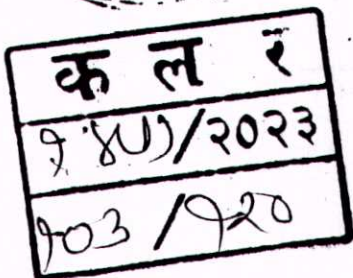 क ल र
१४५/२०२३
१०३/१२०